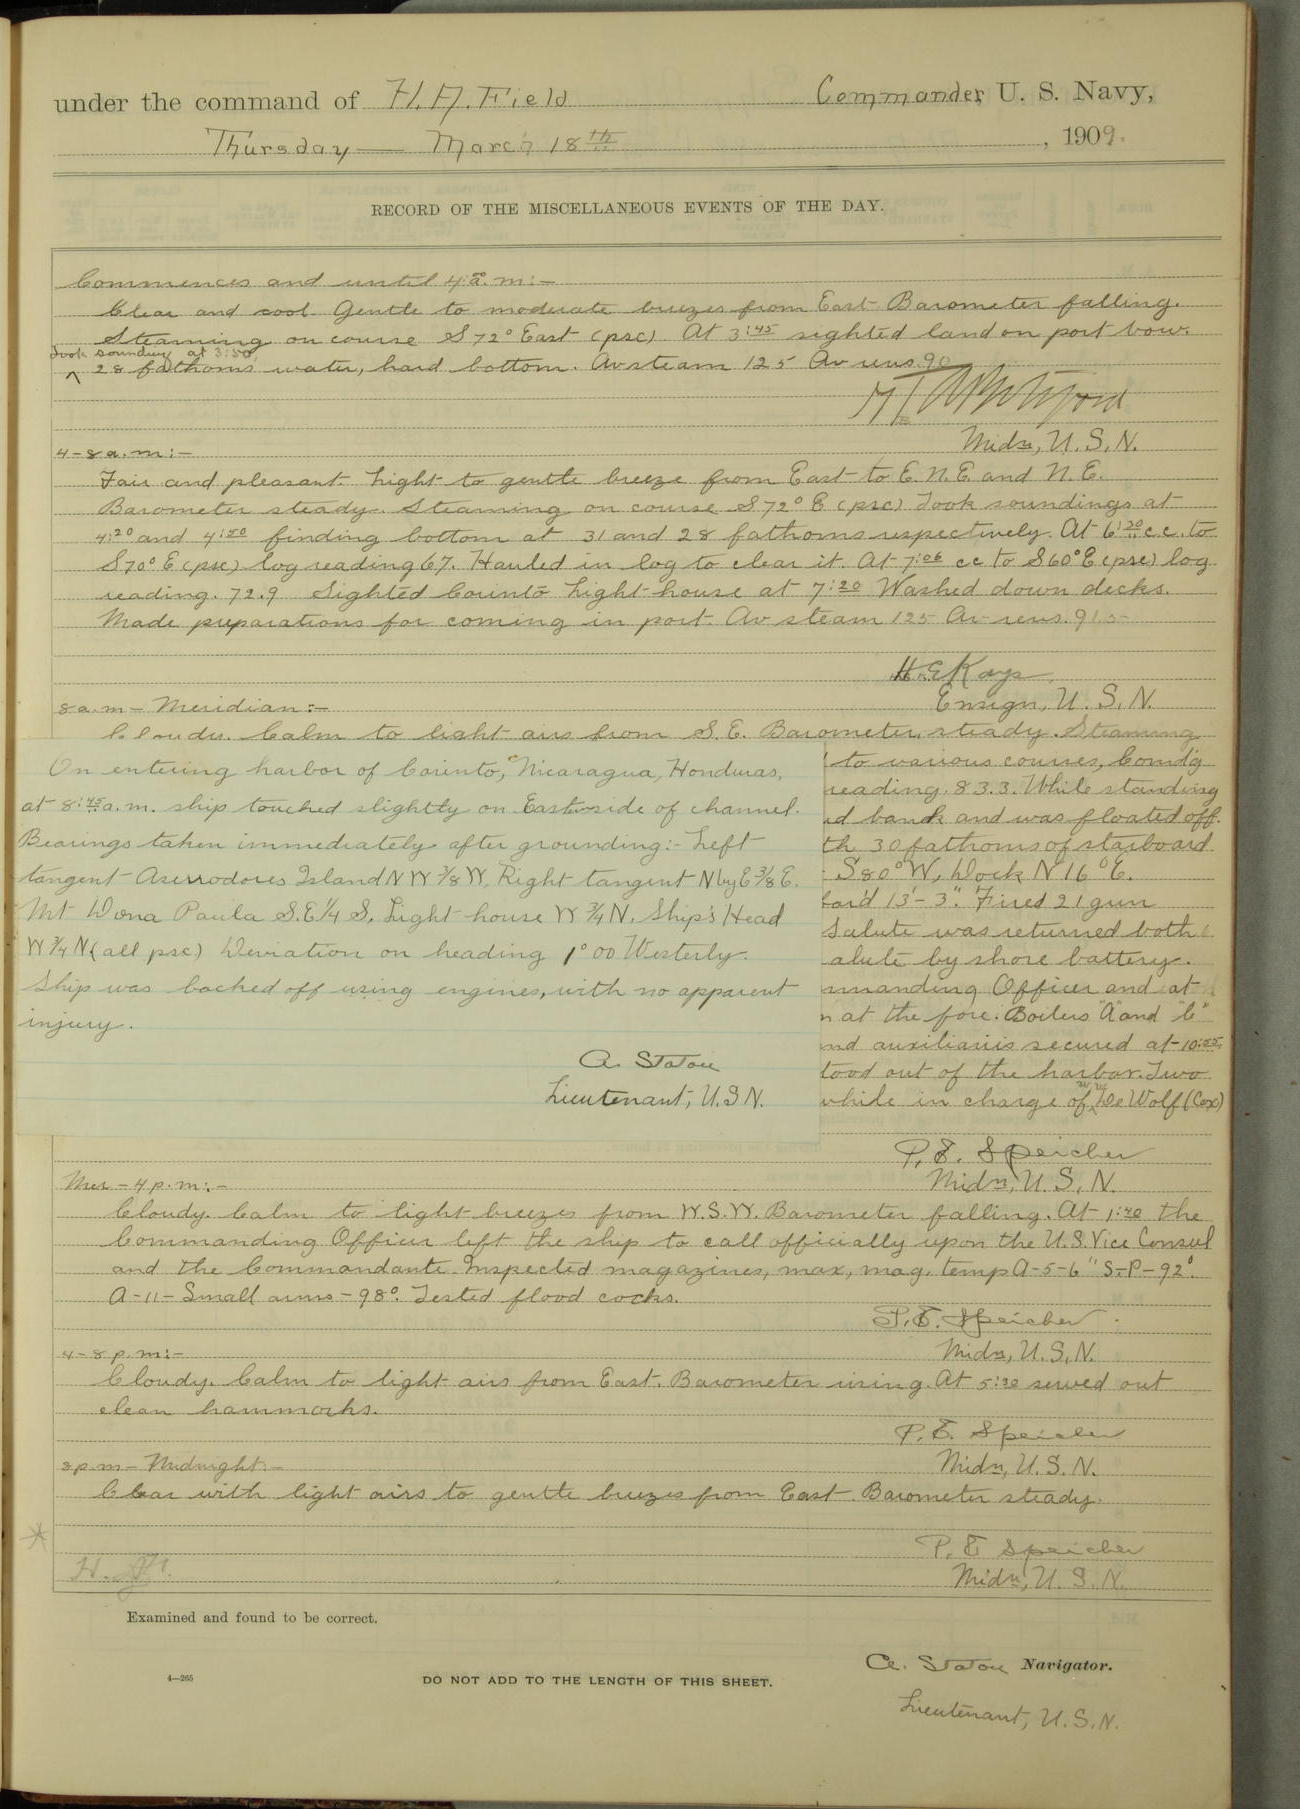 under the command of H. A. Field Commander, U. S. Navy,
Thursday — March 18th, 1909.
RECORD OF THE MISCELLANEOUS EVENTS OF THE DAY.
Commences and until 4: a.m:-
Clear and cool. Gentle to moderate breezes from East. Barometer falling.
Steaming on course S 72° East (psc) At 3:45 sighted land on port bow.
Took sounding at 3:50
^ 28 fathoms water, hard bottom. Av steam 125 Av revs. 90
Midn, U. S. N.
4-8 a.m:-
Fair and pleasant. Light to gentle breeze from East to E. N. E. and N. E.
Barometer steady. Steaming on course S 72° E (psc) Took soundings at
4:20 and 4:50 finding bottom at 31 and 28 fathoms respectively. At 6:20 c.c. to
S 70° E (psc) log reading 67. Hauled in log to clear it. At 7:06 cc to S 60° E (psc) log
reading. 72.9 Sighted Corinto Light-house at 7:20 Washed down decks.
Made preparations for coming in port. Av steam 125 Av revs. 91.5
H. E. Kays
Ensign, U. S. N.
8 a.m - Meridian:-
Cloudy. Calm to light airs from S. E. Barometer steady. Steaming
On entering harbor of Corinto, Nicaragua, Honduras,
at 8:45 a.m. ship touched slightly on Eastern side of channel.
Bearings taken immediately after grounding:- Left
tangent Aserrodores Island N W 3/8 W, Right tangent N by E 3/8 E.
Mt Dona Paula S. E. 1/4 S, Light-house W 3/4 N, Ship's Head
W 3/4 N (all psc) Deviation on heading 1° 00 Westerly.
Ship was backed off using engines, with no apparent
injury.
A. Staton
Lieutenant, U. S. N.
to various courses, Comd'g
reading. 83.3. While standing
bank and was floated off.
th 30 fathoms of starboard
S 80° W, Dock N 16° E.
for'd 13'- 3". Fired 21 gun
Salute was returned both
alute by shore battery.
mmanding Officer and at
n at the fore. Boilers "A" and "C"
nd auxiliaries secured at 10:55,
tood out of the harbor. Two
while in charge of ^ De Wolf (Cox)
P. E. Speicher
Midn, U. S. N.
Mer - 4 p.m:-
Cloudy. Calm to light breezes from W. S. W. Barometer falling. At 1:40 the
Commanding Officer left the ship to call officially upon the U. S. Vice Consul
and the Commandante. Inspected magazines, max, mag. temp A-5-6" S-P-92°.
A-11-Small arms-98°. Tested flood cocks.
P. E. Speicher
Midn, U. S. N.
4-8 p.m:-
Cloudy. Calm to light airs from East. Barometer rising. At 5:30 served out
clean hammocks.
P. E. Speicher
Midn, U. S. N.
8 p.m - Midnight:-
Clear with light airs to gentle breezes from East. Barometer steady.
P. E. Speicher
Midn, U. S. N.
Examined and found to be correct.
A. Staton Navigator.
Lieutenant, U. S. N.
4—265
DO NOT ADD TO THE LENGTH OF THIS SHEET.